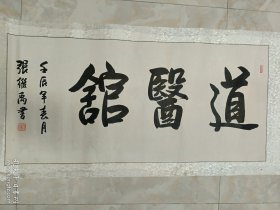 道醫舘
壬辰年春月
張繼禹書